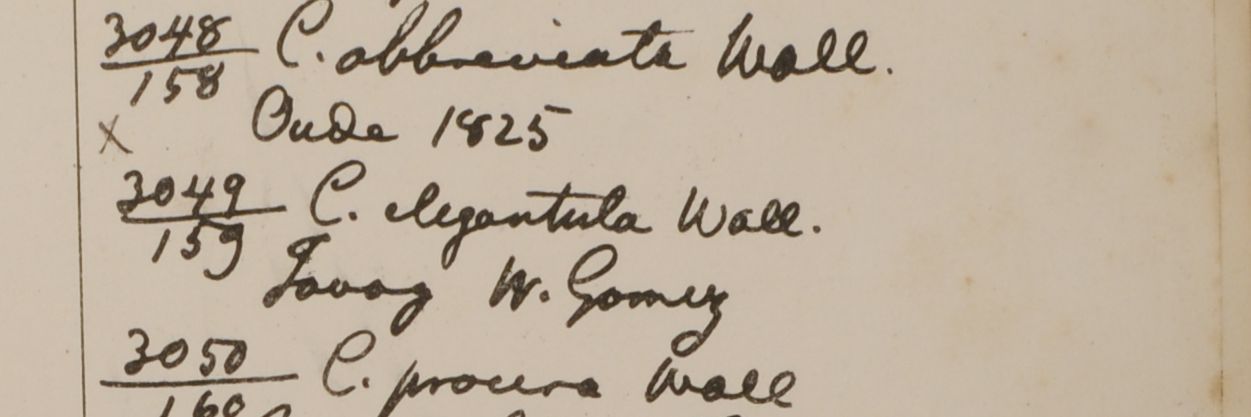 3048 C. abbreviata Wall.
158
x Oude 1825
3049 C. elegantula Wall.
159
Tavoy W. Gomez
3050 C. procera Wall
160